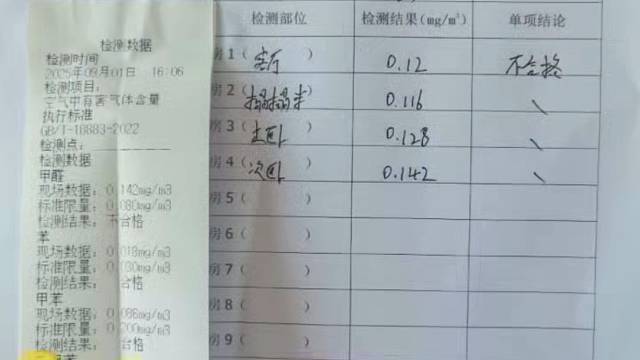 检测数据
检测时间
2025年09月01日 16:06
检测项目:
空气中有害气体含量
执行标准
GB/T-18883-2022
检测点:
检测数据
甲醛
现场数据: 0.142mg/m3
标准限量: 0.080mg/m3
检测结果: 不合格
苯
现场数据: 0.018mg/m3
标准限量: 0.030mg/m3
检测结果: 合格
甲苯
现场数据: 0.086mg/m3
标准限量: 0.200mg/m3
检测结果: 合格
检测部位 检测结果(mg/m³) 单项结论
房1(客厅 ) 0.12 不合格
房2(榻榻米 ) 0.116 \
房3(主卧 ) 0.128 \
房4(次卧 ) 0.142 \
房5( )
房6( )
房7( )
房8( )
房9( )